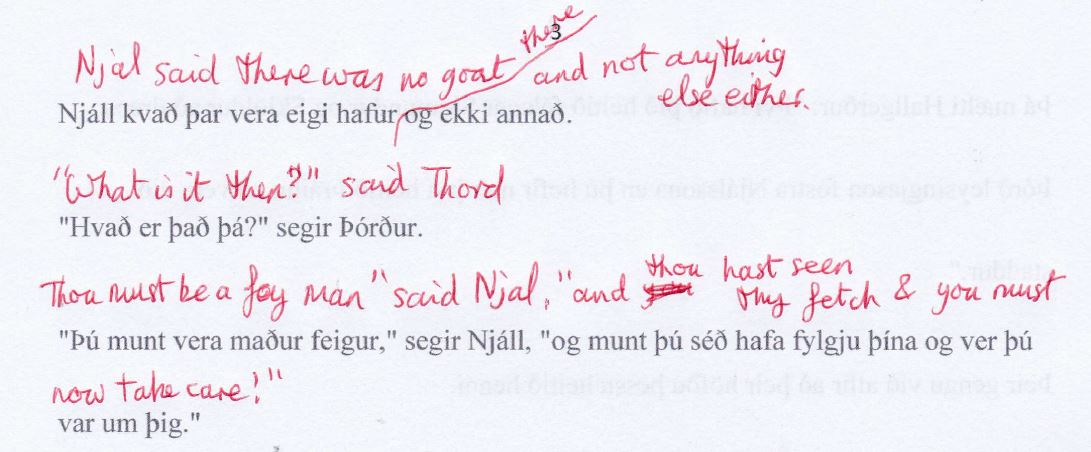 3
there
Njal said there was no goat and not anything
else either.
Njáll kvað þar vera eigi hafur og ekki annað.
"What is it then?" said Thord
"Hvað er það þá?" segir Þórður.
thou hast seen
Thou must be a fey man" said Njal, "and thy fetch & you must
"Þú munt vera maður feigur," segir Njáll, "og munt þú séð hafa fylgju þína og ver þú
now take care!"
var um þig."